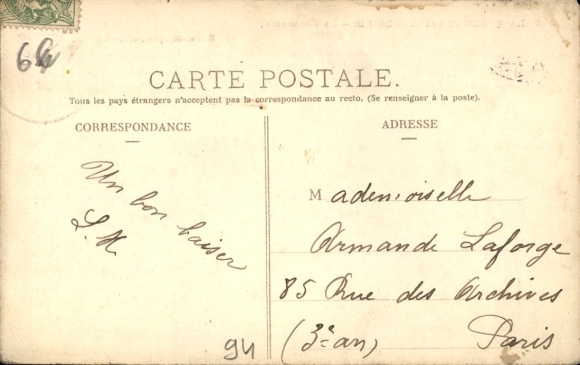 64
CARTE POSTALE.
Tous les pays étrangers n'acceptent pas la correspondance au recto. (Se renseigner à la poste).
CORRESPONDANCE
Un bon baiser
L. H.
ADRESSE
Mademoiselle
Armande Laforge
85 Rue des Archives
(3e an) Paris
94